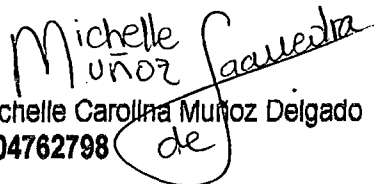 Michelle
Muñoz Saavedra
de
chelle Carolina Muñoz Delgado
04762798